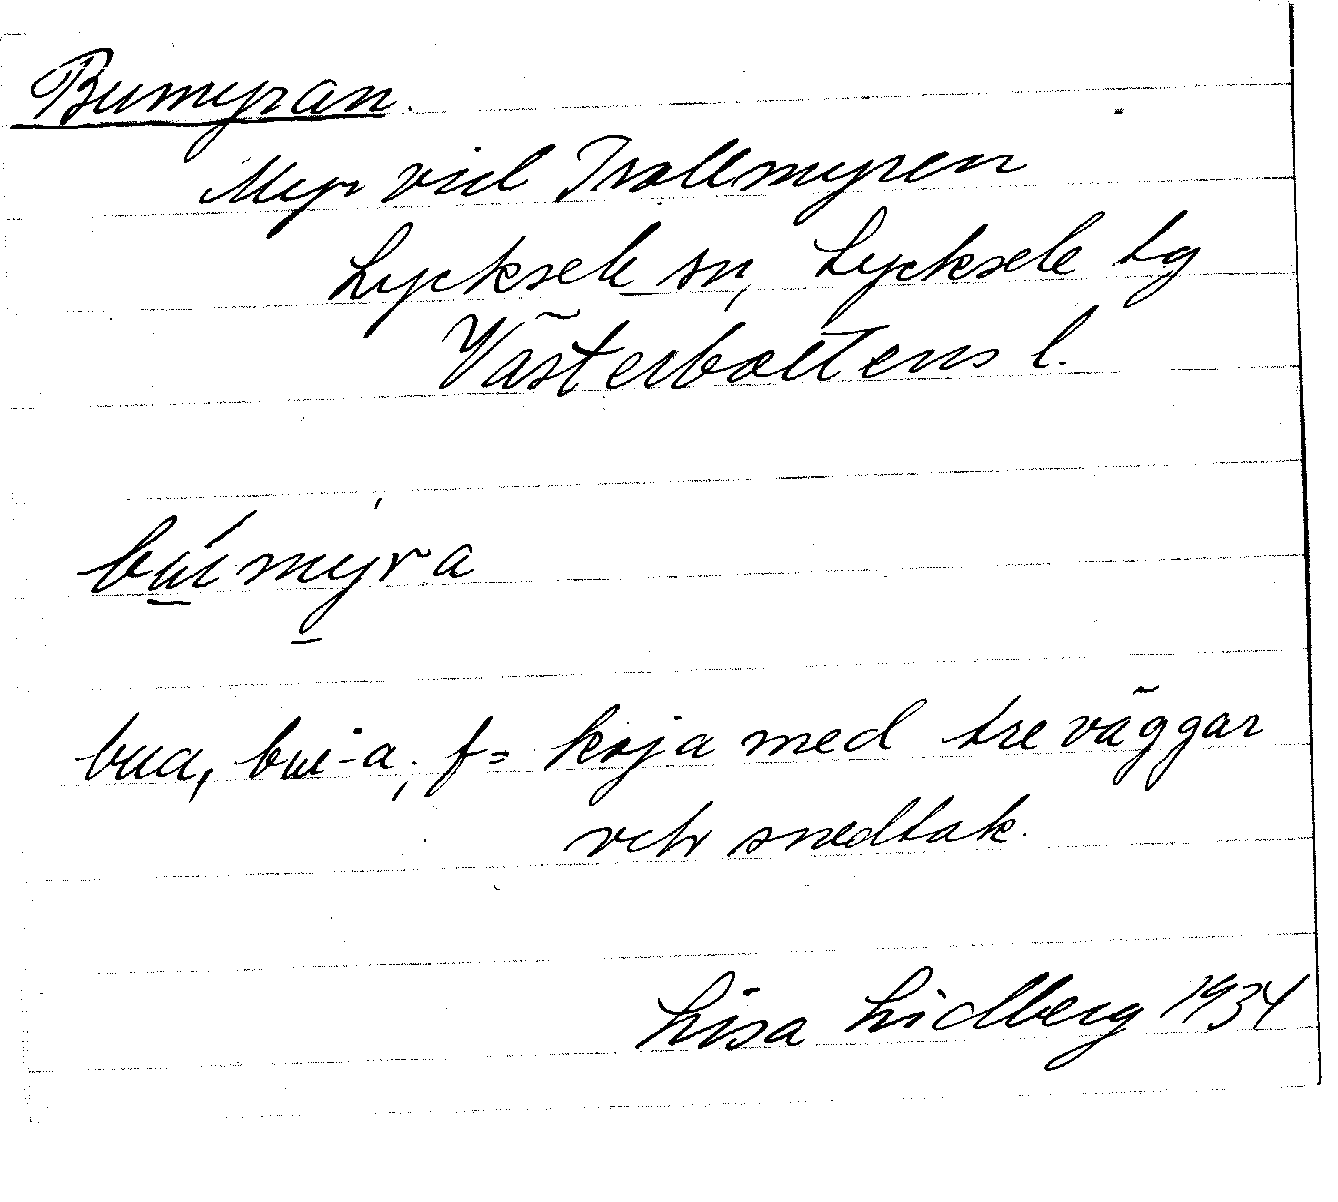 Bumyran.
Myr vid Trollmyren
Lycksele sn, Lycksele lg
Västerbottens l.
búmyra
bua, bu-a, f = koja med tre väggar
och snedtak.
Lisa Lidberg 1934